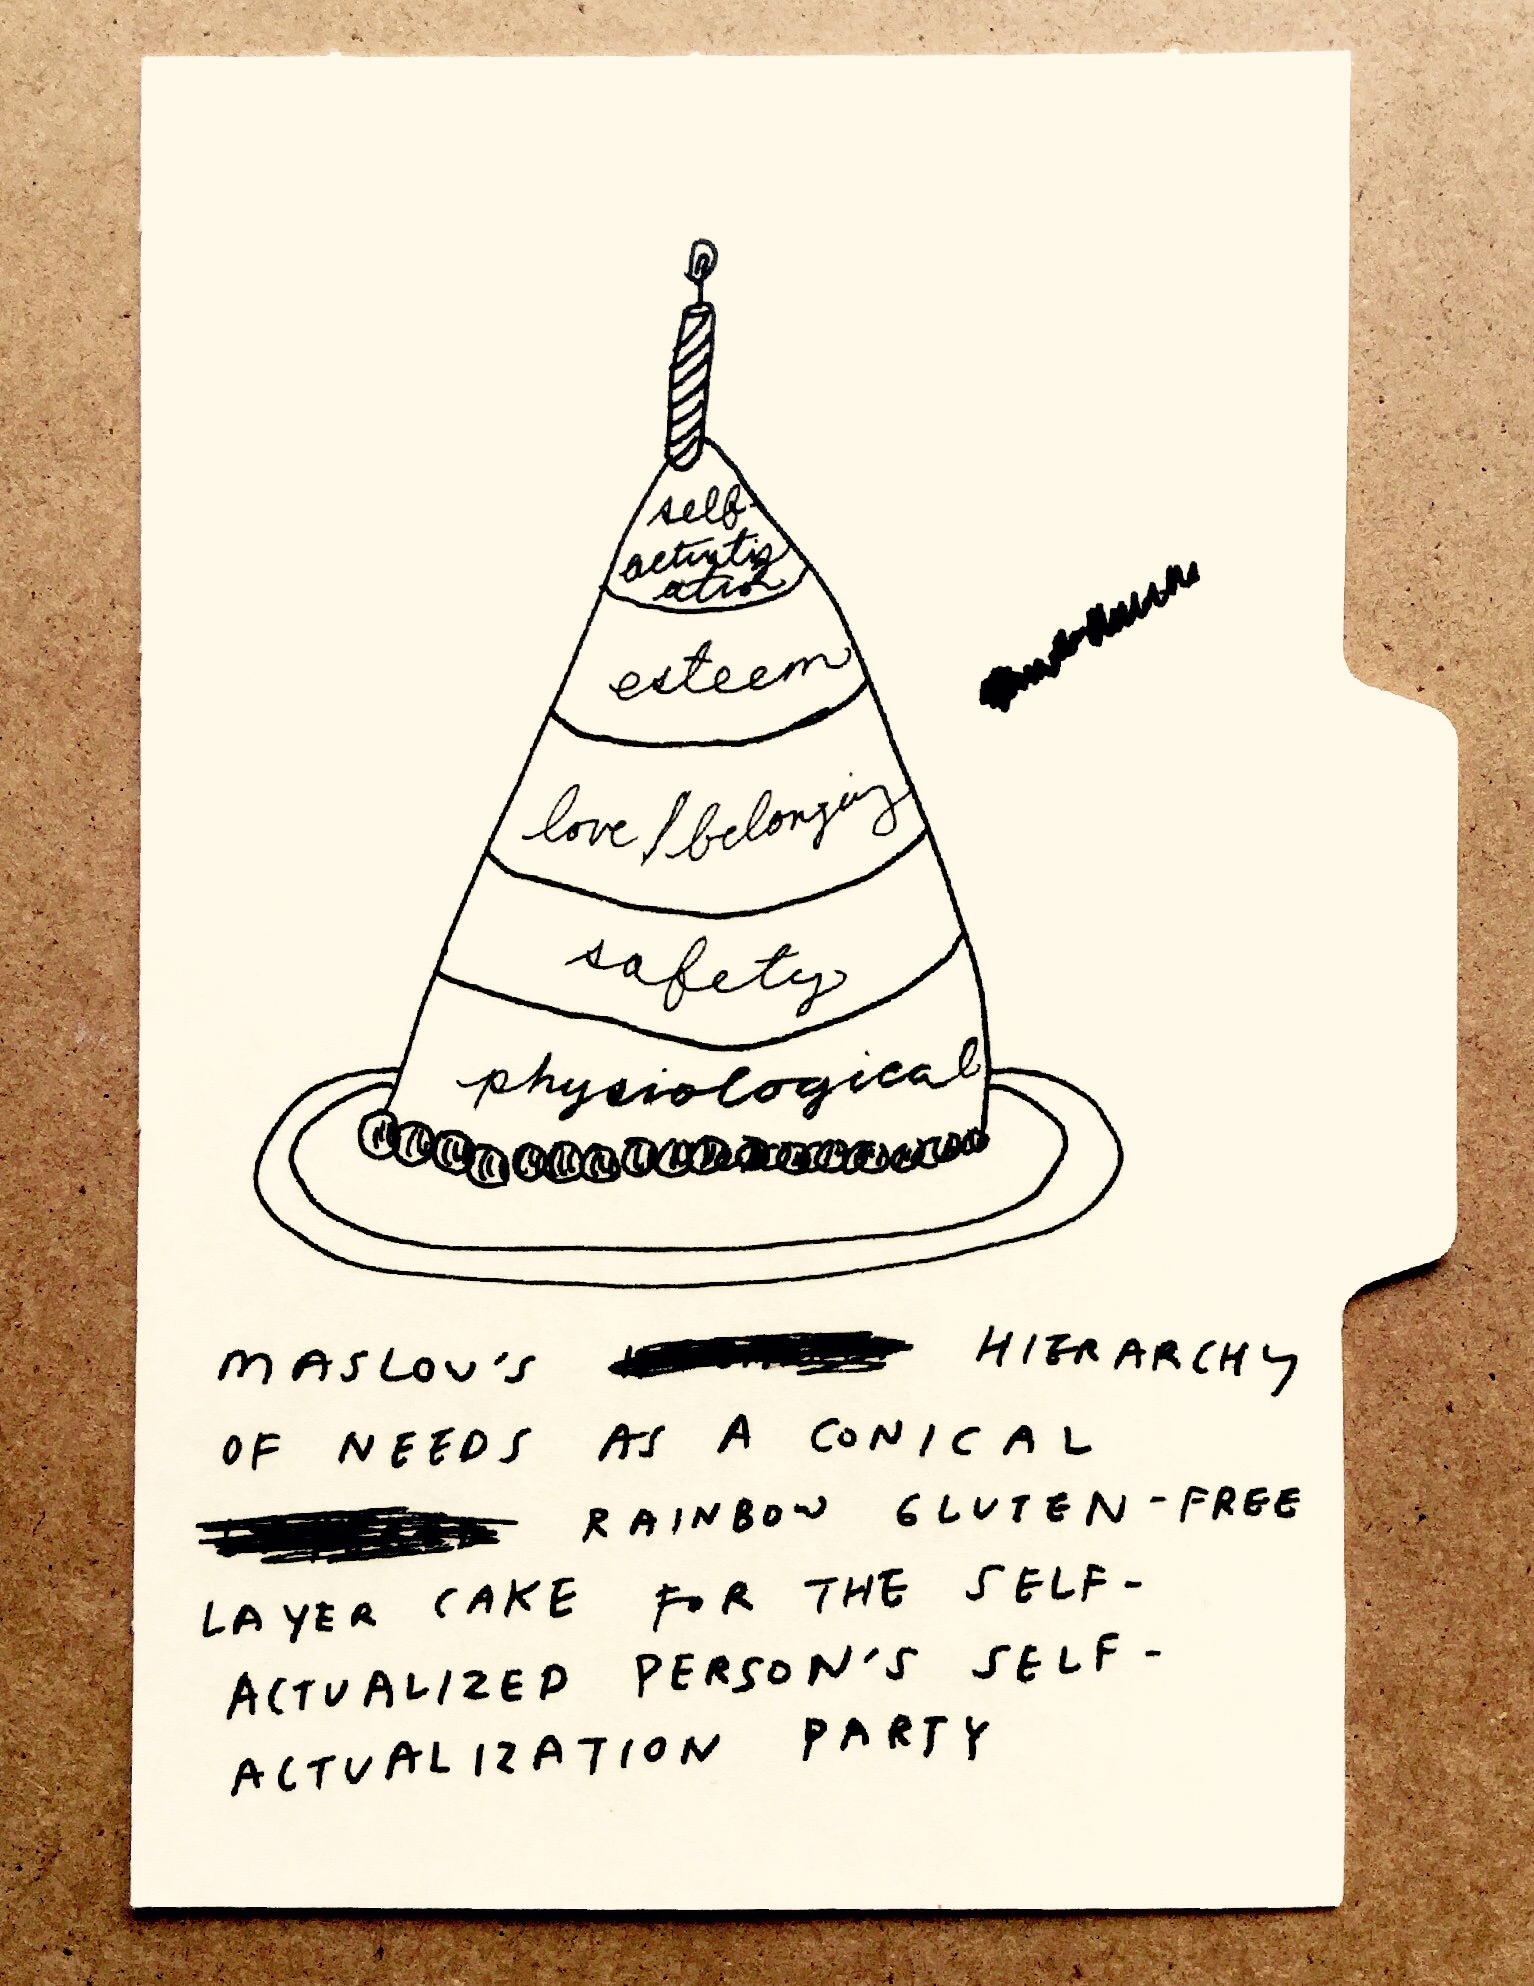 self-
actualiz
ation
esteem
love/belonging
safety
physiological
MASLOW'S HIERARCHY
OF NEEDS AS A CONICAL
RAINBOW GLUTEN-FREE
LAYER CAKE FOR THE SELF-
ACTUALIZED PERSON'S SELF-
ACTUALIZATION PARTY